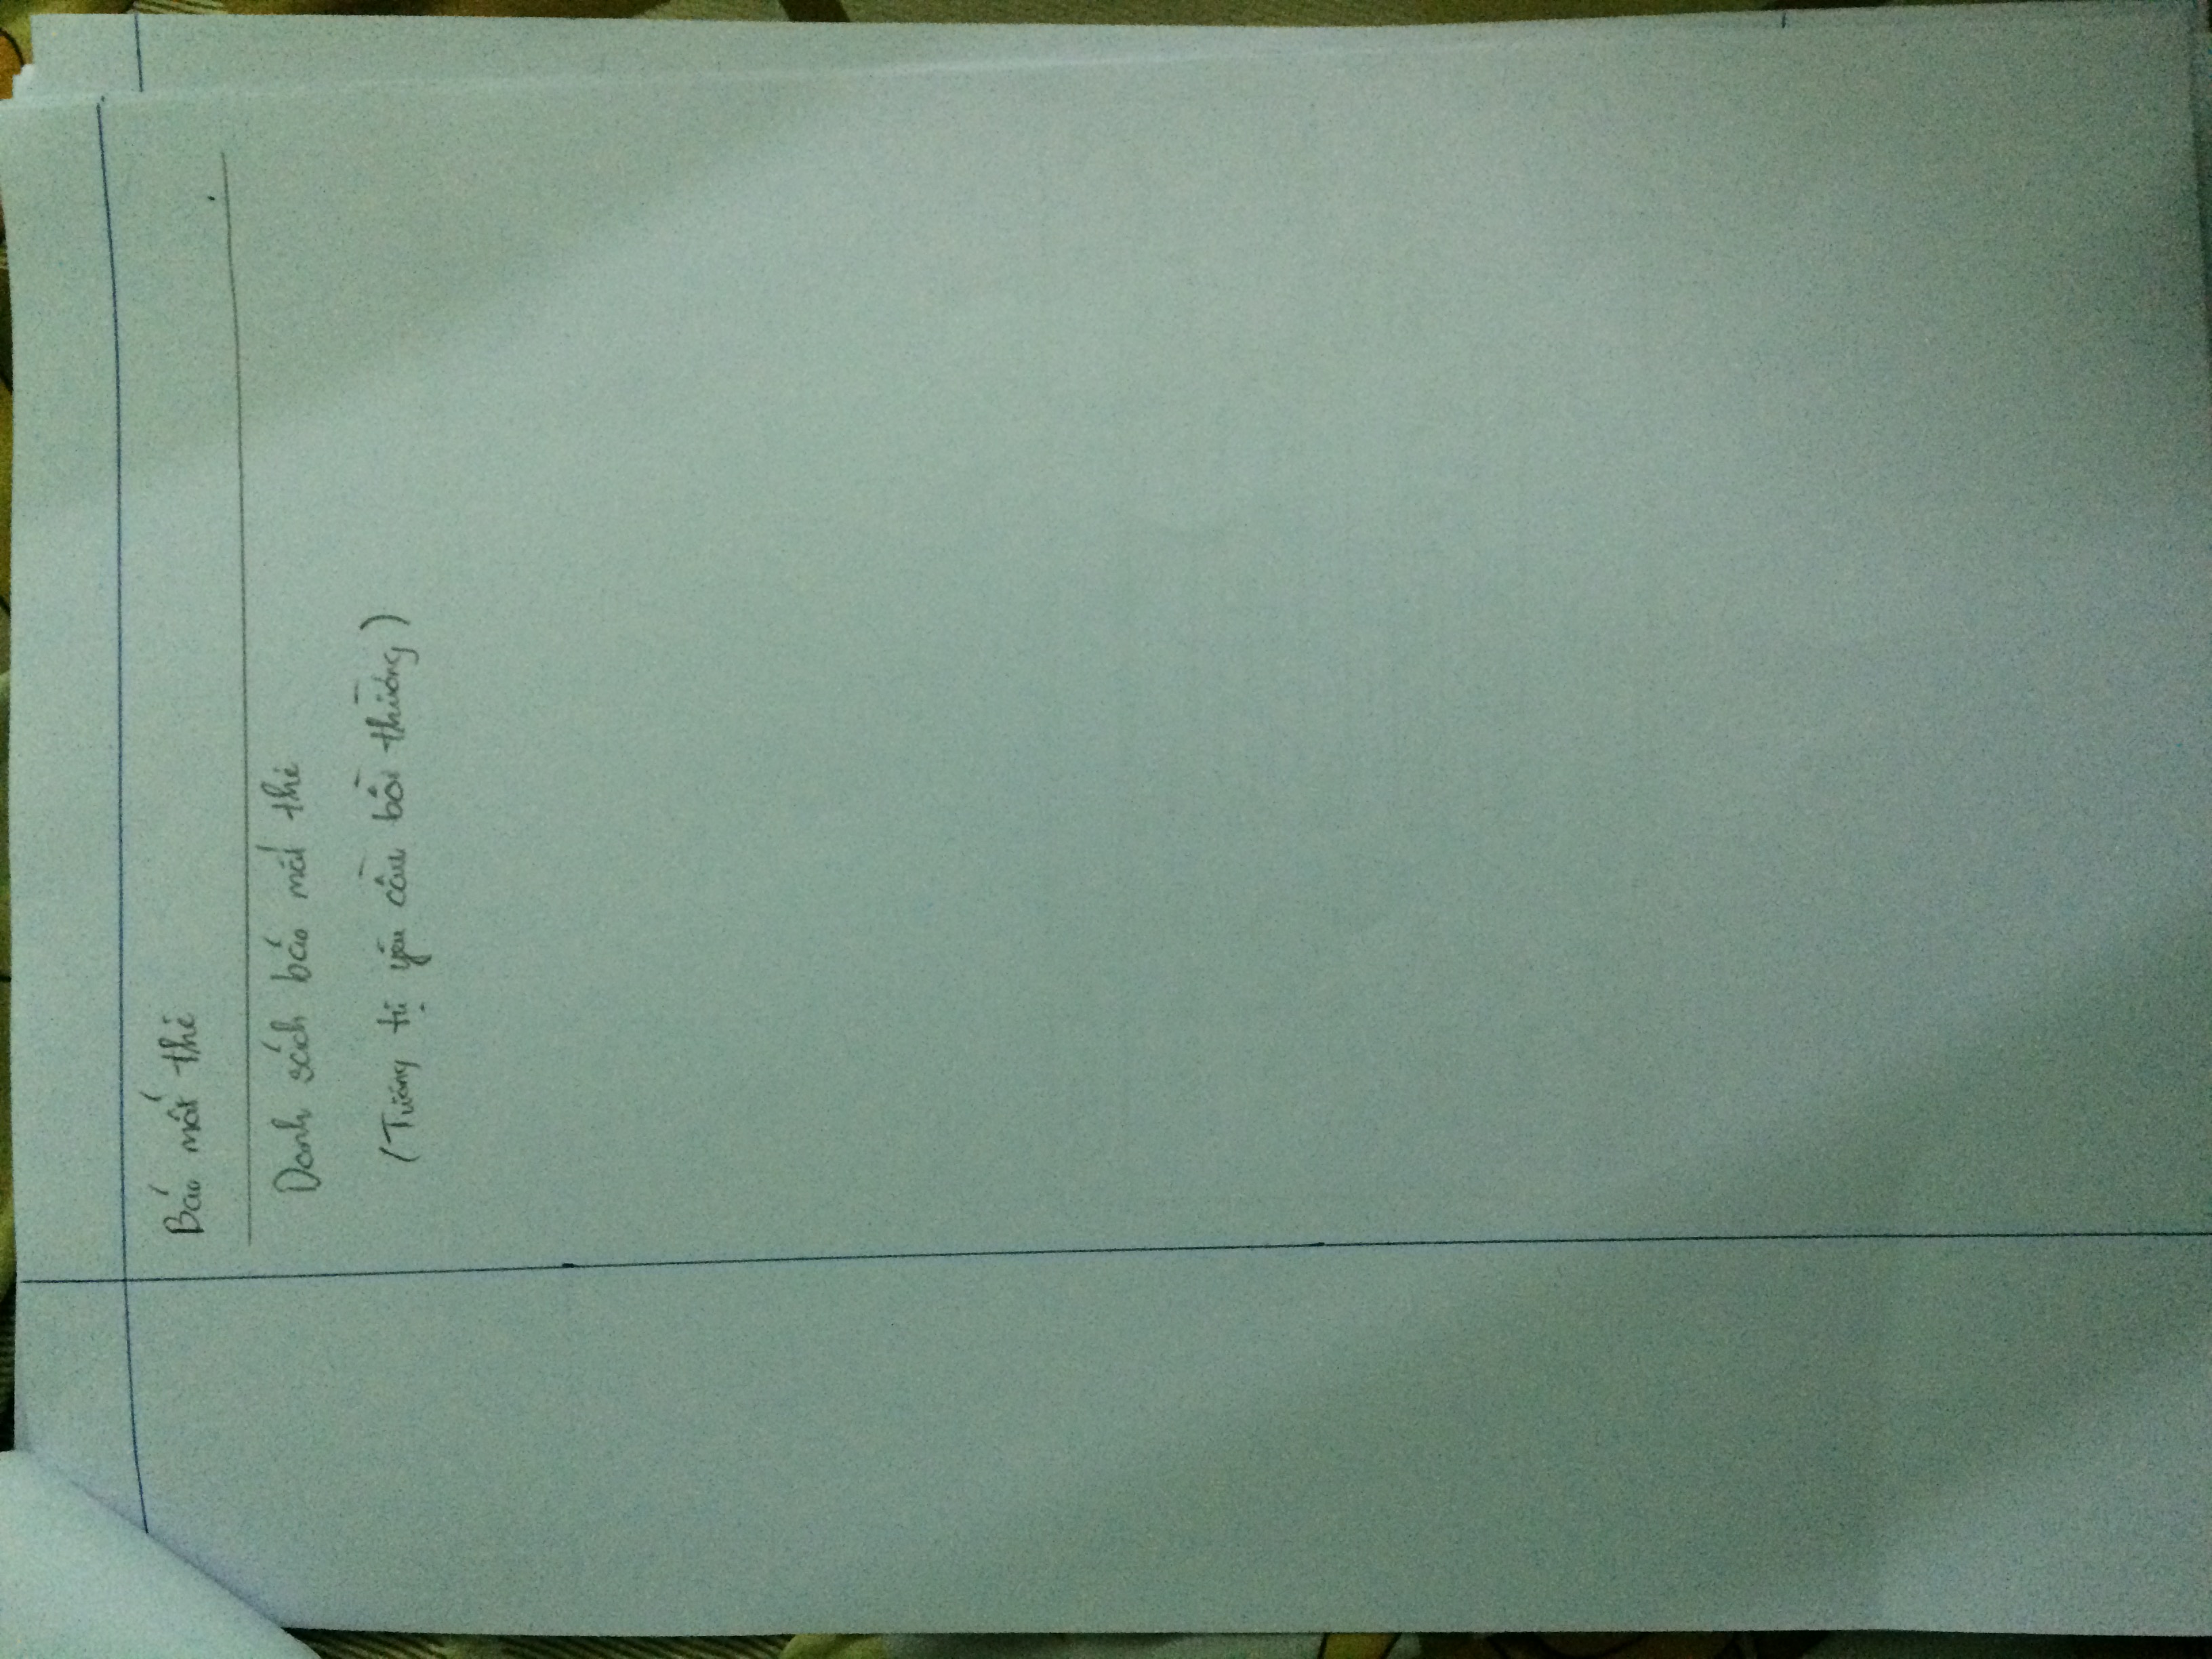 Báo mất thẻ
Danh sách báo mất thẻ
(Tương tự yêu cầu bồi thường)